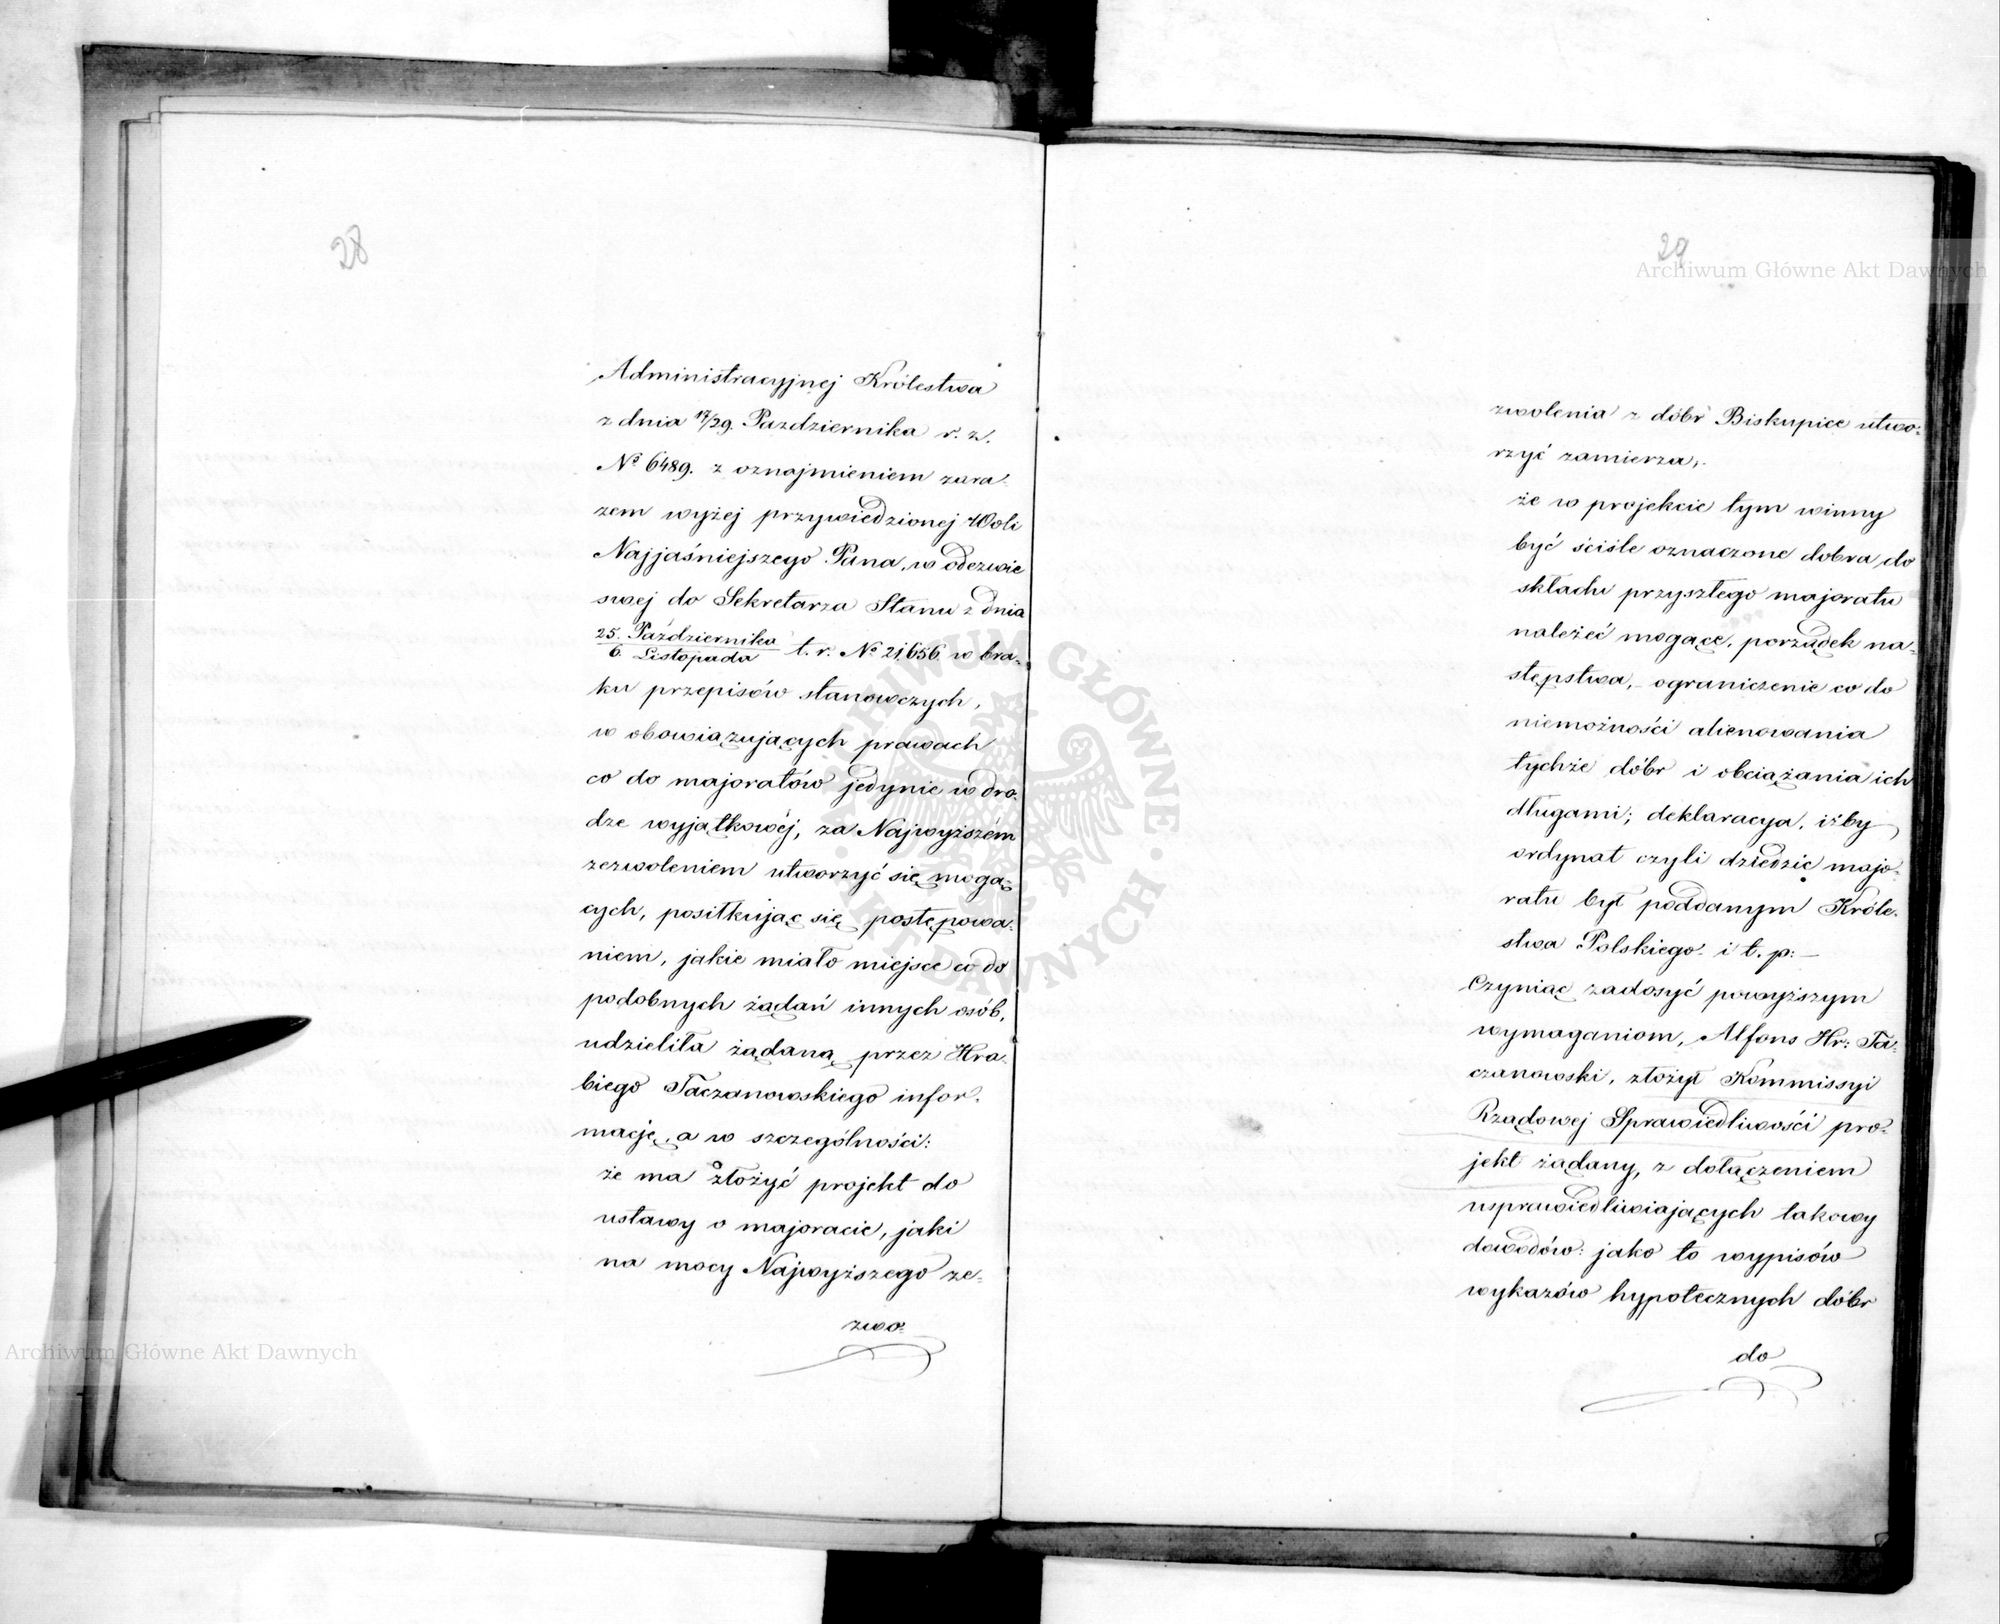 28
Administracyjnej Królestwa
z dnia 17/29. Pazdziernika r. z.
No 6489. z oznajmieniem zara-
zem wyżej przywiedzionej Woli
Najjaśniejszego Pana, w odezwie
swej do Sekretarza Stanu z dnia
25. Października / 6. Listopada t. r. No 21,656. w bra-
ku przepisów stanowczych,
w obowiązujących prawach
co do majoratów jedynie w dro-
dze wyjątkowéj, za Najwyższém
zezwoleniem utworzyć się mogą-
cych, posiłkując się postępowa-
niem, jakie miało miejsce co do
podobnych żądań innych osób,
udzieliła żądaną przez Hra-
biego Taczanowskiego infor-
mację, a w szczególności:
że ma złożyć projekt do
ustawy o majoracie, jaki
na mocy Najwyższego ze-
zwo-
29
Archiwum Główne Akt Dawnych
zwolenia z dóbr Biskupice utwo-
rzyć zamierza,
że w projekcie tym winny
być ściśle oznaczone dobra do
składu przyszłego majoratu
należeć mogące, porządek na-
stępstwa, - ograniczenie co do
niemożności alienowania
tychże dóbr i obciążania ich
długami; deklaracya, iżby
ordynat czyli dziedzic majo-
ratu był poddanym Króle-
stwa Polskiego. i t. p: -
Czyniąc zadosyć powyższym
wymaganiom, Alfons Hr: Ta-
czanowski, złożył Kommissyi
Rządowej Sprawiedliwości pro-
jekt żądany, z dołączeniem
usprawiedliwiających takowy
dowodów: jako to wypisów
wykazów hypotecznych dóbr
do
ARCHIWUM GŁÓWNE AKT DAWNYCH
Archiwum Główne Akt Dawnych